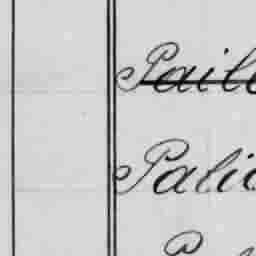 Paill
Palic